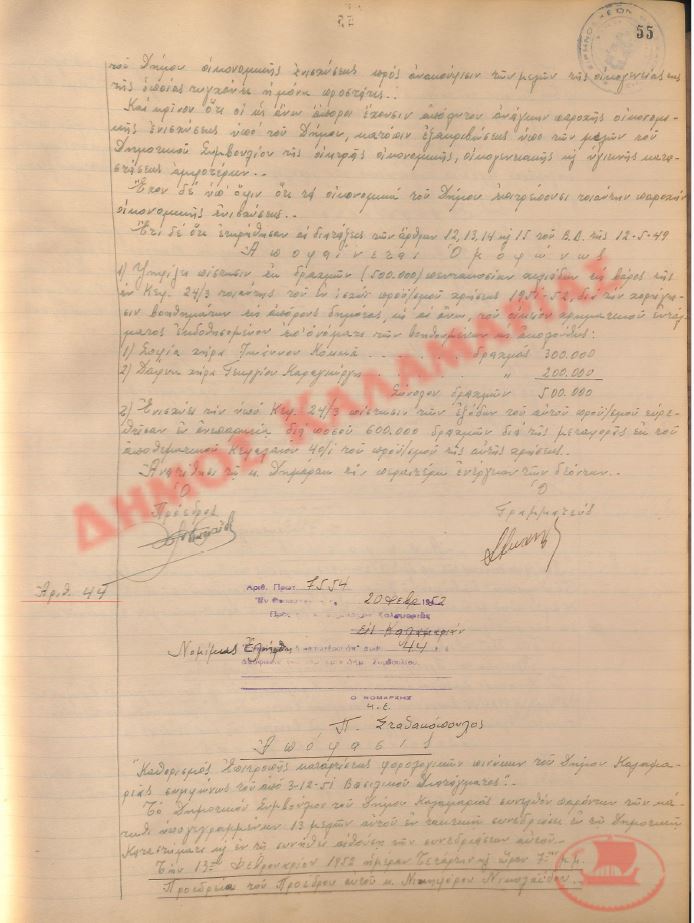 55
τοῦ Δήμου οἰκονομικῆς ἐνισχύσεως πρός ἀνακούφισιν τῶν μελῶν τῆς οἰκογενείας της
τῆς ὁποίας τυγχάνει ἡ μόνη προστάτις..
Καί κρῖνον ὅτι οἱ ὡς ἄνω ἄποροι ἔχουσιν ἀπόλυτον ἀνάγκην παροχῆς οἰκονομι-
κῆς ἐνισχύσεως ὑπό τοῦ Δήμου, κατόπιν ἐξακριβώσεως ὑπό τῶν μελῶν τοῦ
Δημοτικοῦ Συμβουλίου τῆς οἰκτρᾶς οἰκονομικῆς, οἰκογενειακῆς καί ὑγιεινῆς κατα-
στάσεως ἀμφοτέρων..
Ἔχον δέ ὑπ' ὄψιν ὅτι τά οἰκονομικά τοῦ Δήμου ἐπιτρέπουσι τοιαύτην παροχήν
οἰκονομικῆς ἐνισχύσεως..
Ἔτι δέ ὅτι ἐτηρήθησαν αἱ διατάξεις τῶν ἄρθρων 12, 13, 14 καί 15 τοῦ Β.Δ. τῆς 12-5-49
Ἀποφαίνεται Ὁμοφώνως
1) Ψηφίζει πίστωσιν ἐκ δραχμῶν (500.000) πεντακοσίων χιλιάδων εἰς βάρος τῆς
ἐν Κεφ. 24/3 τοιαύτης τοῦ ἐν ἰσχύι προϋ/σμοῦ χρήσεως 1951-52, διά τήν χορήγη-
σιν βοηθημάτων εἰς ἀπόρους δημότας, ὡς οἱ ἄνω, τοῦ οἰκείου χρηματικοῦ ἐντάλ-
ματος ἐκδοθησομένου ἐπ' ὀνόματι τῶν βοηθουμένων ὡς ἀκολούθως:
1) Σοφία χήρα Ἰωάννου Κομνᾶ . . . . δραχμάς 300.000
2) Δάφνη χήρα Γεωργίου Καραγιώργη . . . " 200.000
Σύνολον δραχμῶν 500.000
2) Ἐνισχύει τήν ὑπό Κεφ. 24/3 πίστωσιν τῶν ἐξόδων τοῦ αὐτοῦ προϋ/σμοῦ εὑρε-
θεῖσαν ἐν ἀνεπαρκείᾳ διά ποσοῦ 600.000 δραχμῶν διά τῆς μεταφορᾶς ἐκ τοῦ
ἀποθεματικοῦ Κεφαλαίου 40/1 τοῦ προϋ/σμοῦ τῆς αὐτῆς χρήσεως.
Ἀνατίθησι τῷ κ. Δημάρχῳ τήν περαιτέρω ἐνέργειαν τῶν δεόντων..
Ὁ Ὁ
Πρόεδρος Γραμματεύς
ΔΗΜΟΣ ΚΑΛΑΜΑΡΙΑΣ
Ἀριθ. 44
Ἀριθ. Πρωτ. 7554
20 Φεβρ 1952
Πρός
Εἰς Καλαμαριάν
Νομίμως Ἐλήφθη 44
Ο ΝΟΜΑΡΧΗΣ
κ.ε.
Π. Σταδακόπουλος
Ἀπόφασις
"Καθορισμός Ἐπιτροπῆς καταρτίσεως φορολογικῶν πινάκων τοῦ Δήμου Καλαμα-
ριᾶς συμφώνως τοῦ ἀπό 3-12-51 Βασιλικοῦ Διατάγματος".
Τό Δημοτικόν Συμβούλιον τοῦ Δήμου Καλαμαριᾶς συνελθόν παρόντων τῶν κά-
τωθι ὑπογεγραμμένων 13 μελῶν αὐτοῦ ἐν τακτικῇ συνεδριάσει ἐν τῷ Δημοτικῷ
Καταστήματι καί ἐν τῇ συνήθει αἰθούσῃ τῶν συνεδριάσεων αὐτοῦ..
Τήν 13ην Φεβρουαρίου 1952 ἡμέραν Τετάρτην καί ὥραν 7ην μ.μ.
Προεδρίᾳ τοῦ Προέδρου αὐτοῦ κ. Νικηφόρου Νικολαΐδου..